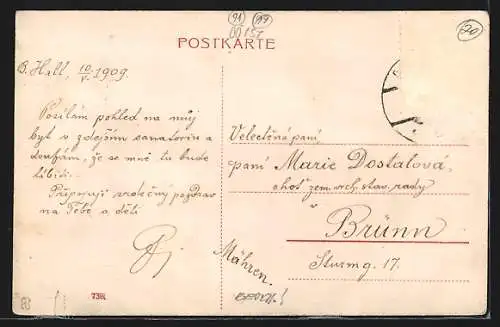 POSTKARTE
B. Hall, 10/V. 1909.
Posílám pohled na můj
byt v zdejším sanatoriu a
doufám, že se mně tu bude
líbiti.
Připojuji srdečný pozdrav
na Tebe a děti
Velectěná paní,
paní Marie Dostalová,
choť zem. vrch. stav. rady
v
Brünn
Mähren.
Sturmg. 17.
738.
20